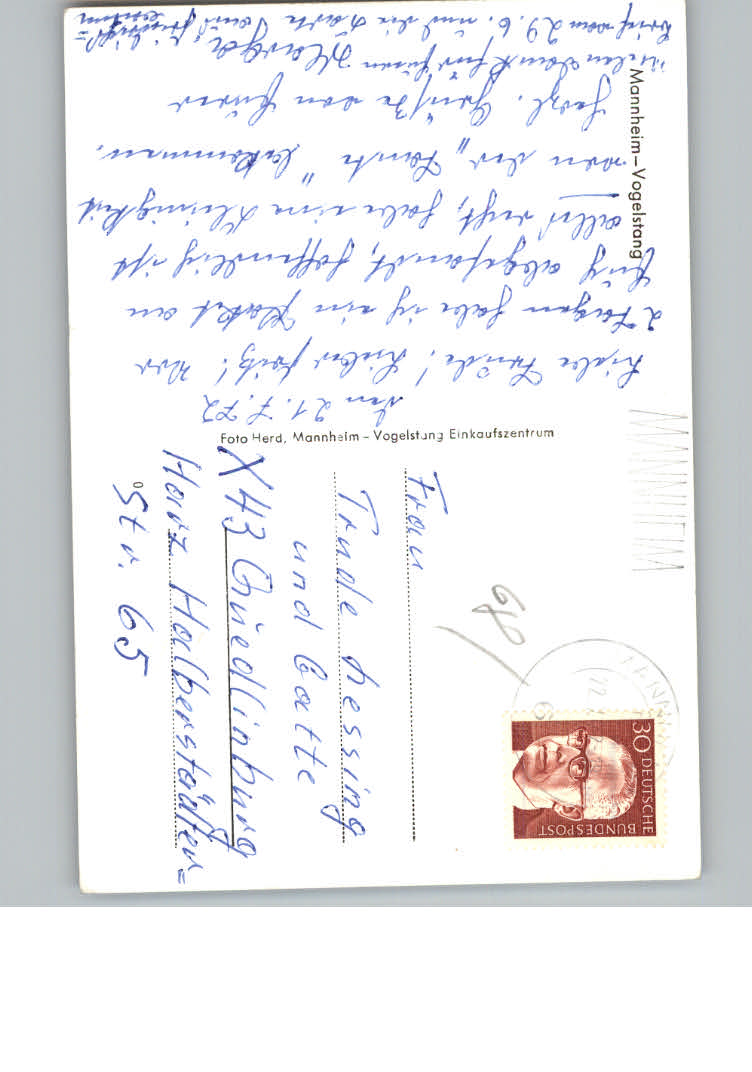 Mannheim – Vogelstang
den 21.7.72
Liebe Trude! Lieber Fritz! Vor
2 Tagen habe ich ein Paket an
Euch abgesandt, hoffendlich ist
alles recht, habe eine Kleinigkeit
von der „Tante" bekommen.
Herzl. Grüße von Eurer
Marga
Vielen Dank für Euren
Brief vom 29.6. und die Karte
Foto Herd, Mannheim – Vogelstang Einkaufszentrum
Frau
Trude Lessing
und Gatte
X43 Quedlinburg
Harz Halberstädter=
Str. 65
68
MANNHEIM
MANNHEIM
30 DEUTSCHE
BUNDESPOST